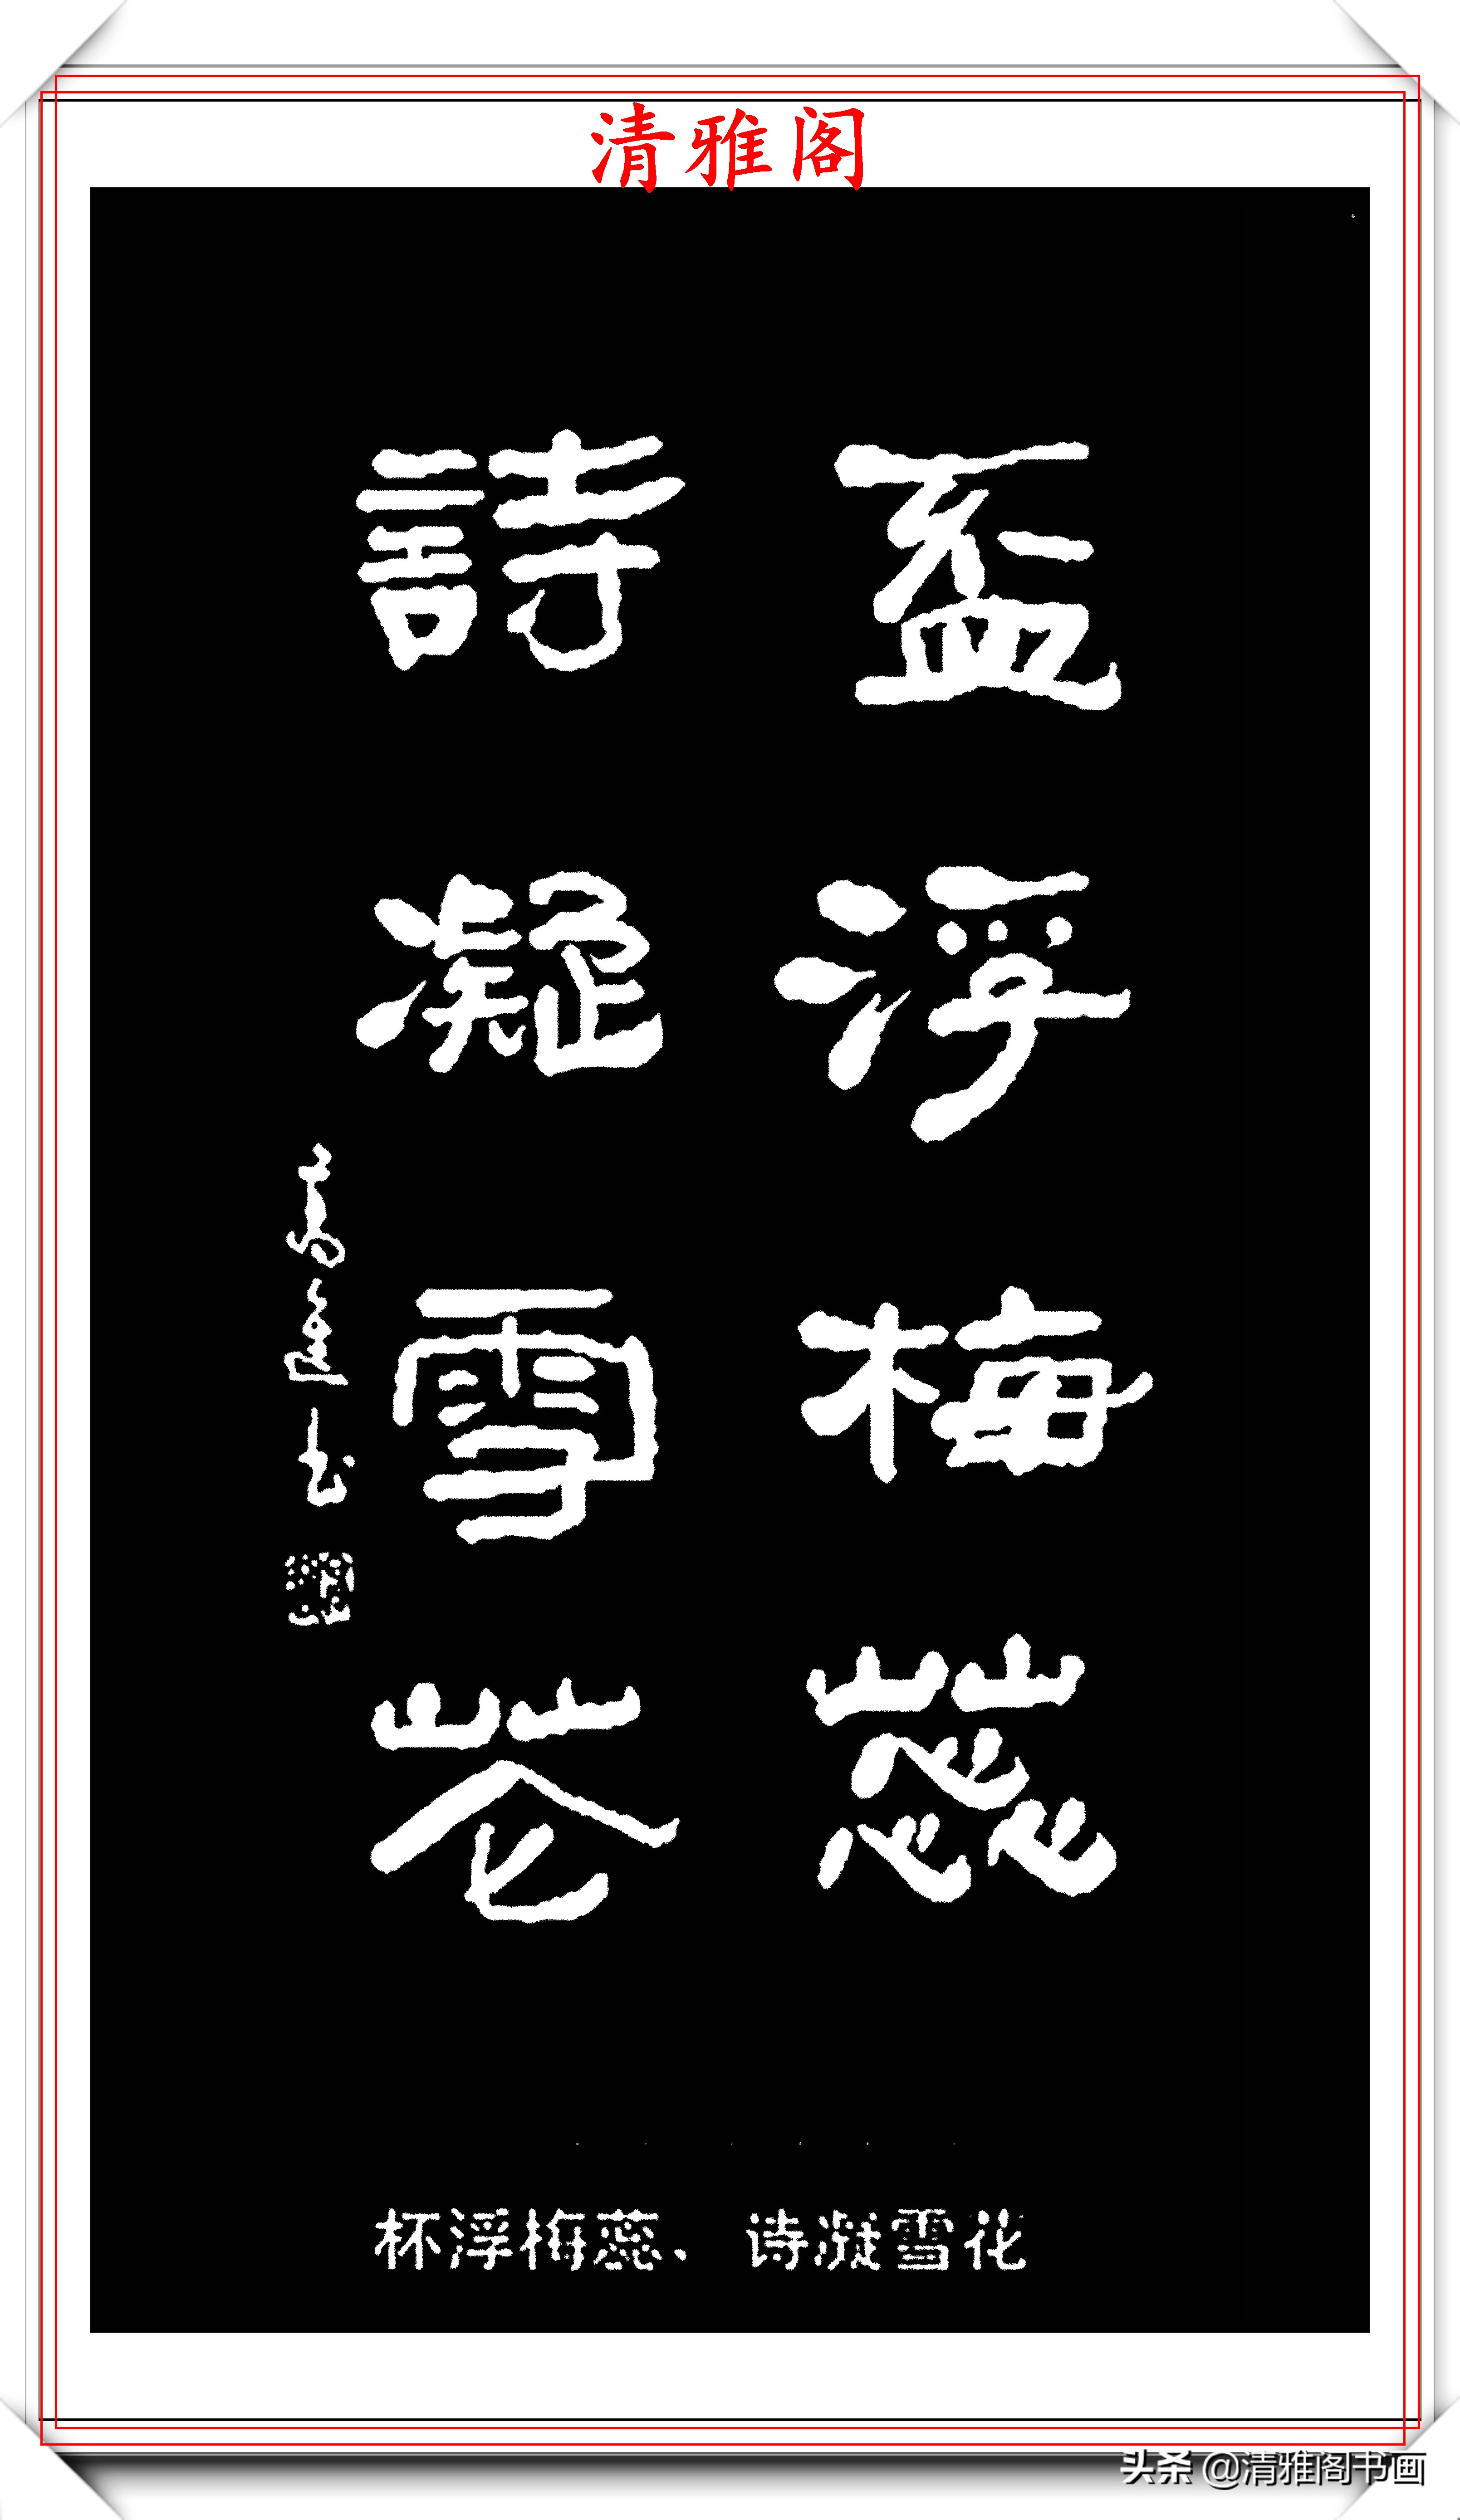 清雅阁
盃浮梅蕊
詩凝雪花
杯浮梅蕊、诗凝雪花
头条 @清雅阁书画